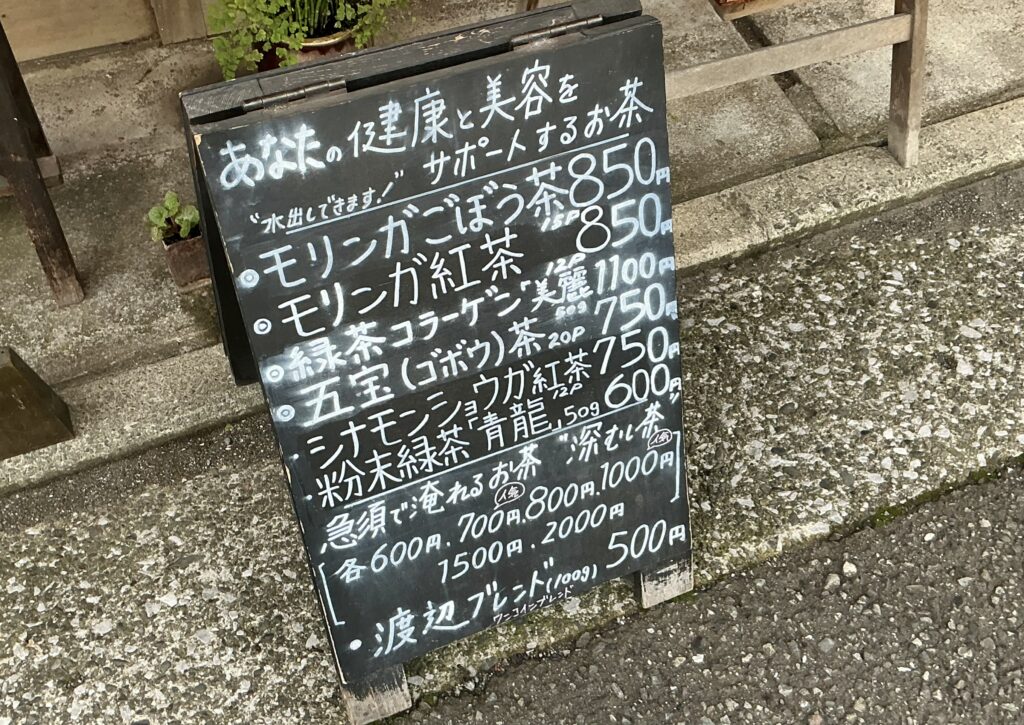 あなたの健康と美容を
サポートするお茶
"水出しできます!"
◎モリンガごぼう茶 15P 850円
◎モリンガ紅茶 12P 850円
◎緑茶コラーゲン"美麗 50g 1100円
◎五宝(ゴボウ)茶 20P 750円
・シナモンショウガ紅茶 12P 750円
・粉末緑茶「青龍」50g 600円
急須で淹れるお茶 "深むし茶"
各600円.700円.800円.1000円
人気 人気
1500円.2000円
・渡辺ブレンド(100g) 500円
ワンコインブレンド